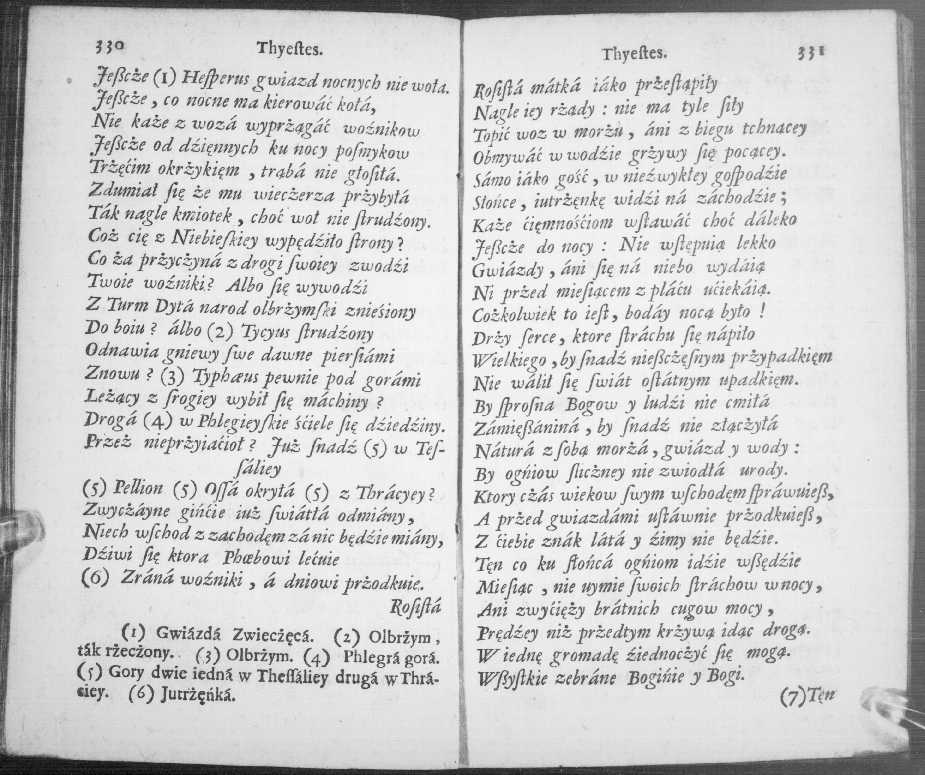 330 Thyestes.
Jeßcże (1) Hesperus gwiazd nocnych nie woła.
Jeßcże, co nocne ma kierowáć kołá,
Nie każe z wozá wyprżągáć woźnikow
Jeßcże od dźięnnych ku nocy posmykow
Trżęćim okrżykięm, trąbá nie głosiłá.
Zdumiał się że mu wiecżerza prżybyłá
Ták nagle kmiotek, choć woł nie strudzony.
Coż cię z Niebieskiey wypędźiło strony?
Co za prżycżyná z drogi swoiey zwodźi
Twoie woźniki? Albo się wywodźi
Z Turm Dytá narod olbrżymski znieśiony
Do boiu? álbo (2) Tycyus strudźony
Odnawia gniewy swe dawne pierśiámi
Znowu? (3) Typhæus pewnie pod gorámi
Leżący z srogiey wybił się máchiny?
Drogá (4) w Phlegieyskie śćiele się dźiedźiny.
Przeż nieprżyiaćioł? Już snadź (5) w Tes-
sáliey
(5) Pellion (5) Ossá okrytá (5) z Thrácyey?
Zwycżáyne gińćie iuż świátłá odmiány,
Niech wschod z zachodęm zá nic będżie miány,
Dźiwi się ktora Phœbowi lećnie
(6) Zráná woźniki, á dniowi prżodkuie.
Rosistá
(1) Gwiázdá Zwiecżęcá. (2) Olbrżym,
ták rżecżony. (3) Olbrżym. (4) Phlegrá gorá.
(5) Gory dwie iedná w Thessáliey drugá w Thrá-
ciey. (6) Jutrżęńká.
Thyestes. 331
Rosistá mátká iáko prżestąpiły
Nagle iey rżądy: nie ma tyle siły
Topić woz w morżu, áni z biegu tchnącey
Obmywáć w wodźie grżywy się pocącey.
Sámo iáko gość, w nieźwykłey gospodźie
Słońce, iutrżęnkę widźi ná záchodźie;
Każe ćięmnośćiom wstawáć choć dáleko
Jeßcże do nocy: Nie wstępuią lekko
Gwiázdy, áni się ná niebo wydáią
Ni prżed mieśiącem z płáću ućiekáią.
Cożkolwiek to iest, bodáy nocą było!
Drży serce, ktore stráchu się nápiło
Wielkiego, by snadź nießcżęsnym prżypadkięm
Nie wálił się świát ostátnym upadkięm.
By sprosna Bogow y ludźi nie cmiłá
Zámięßániná, by snadź nie złącżyłá
Náturá z sobą morżá, gwiázd y wody:
By ogńiow slicżney nie zwiodłá urody.
Ktory cżás wiekow swym wschodęm spráwuieß,
A przed gwiazdámi ustáwnie prżodkuieß,
Z ćiebie znák látá y źimy nie będżie.
Tęn co ku słońcá ogńiom idźie wßędźie
Mieśiąc, nie uymie swoich stráchow w nocy,
Ani zwyćięży brátnich cugow mocy,
Prędźey niż przedtym krżywą idąc drogą.
W iednę gromadę źiednocżyć się mogą.
Wßystkie zebráne Bogińie y Bogi.
(7) Tęn